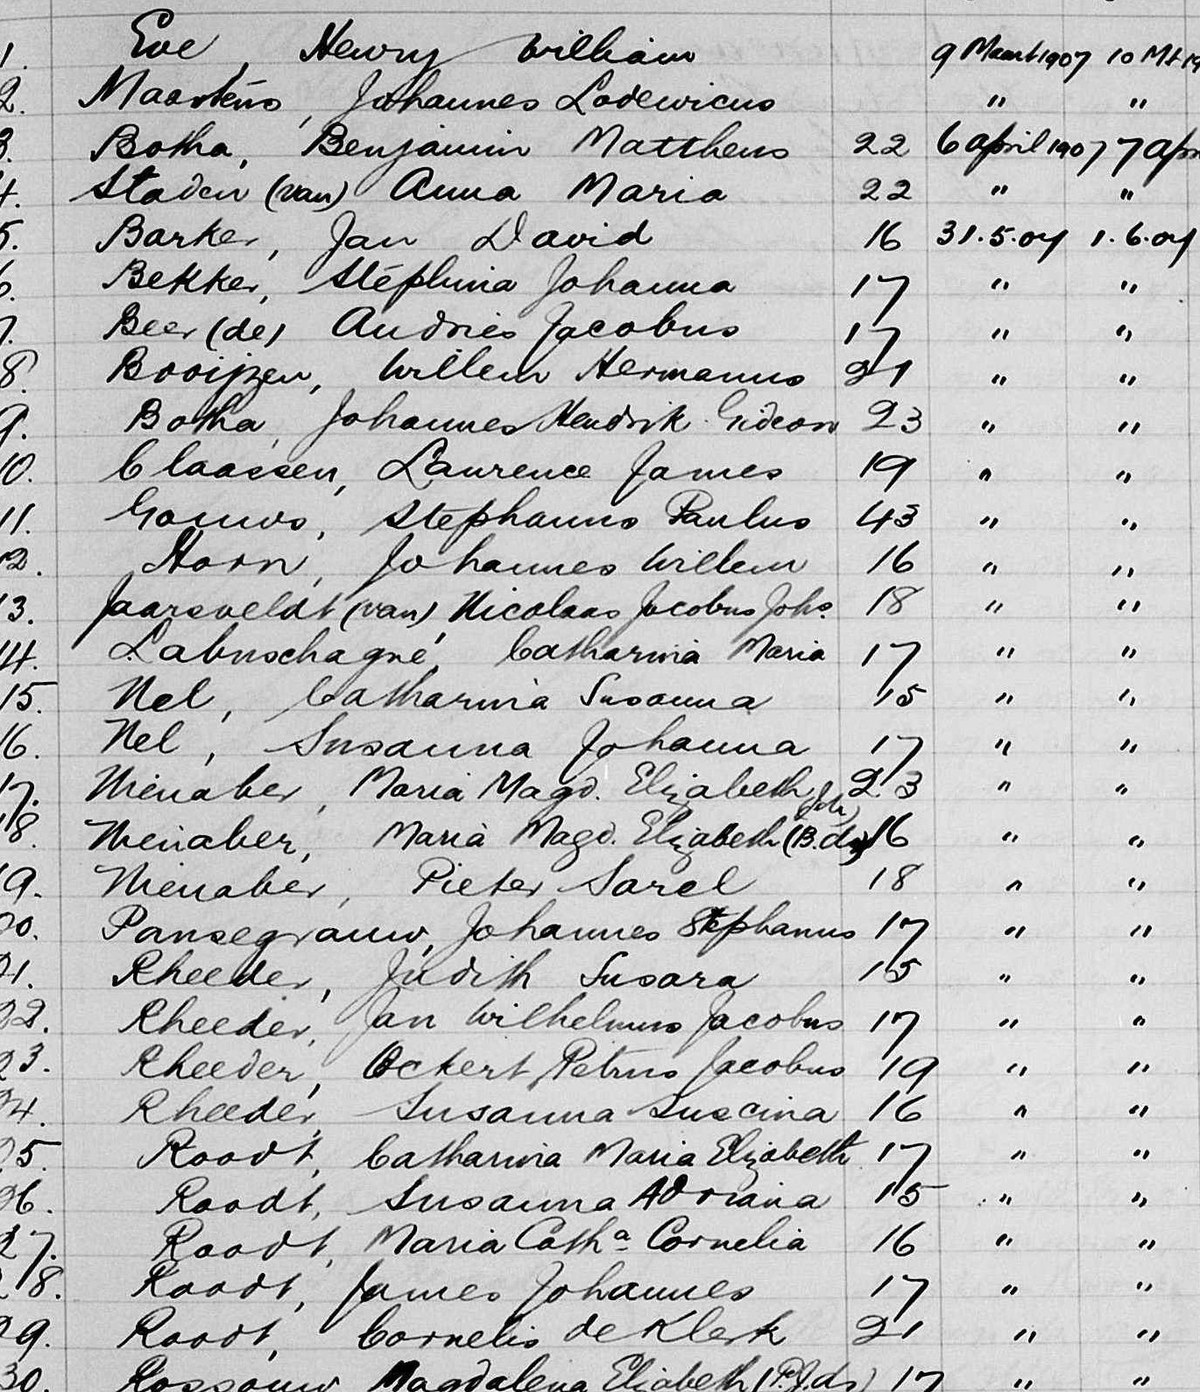 1. Eve, Henry William 9 Maart 1907 10 Mt 19
2. Maartens, Johannes Lodewicus " "
3. Botha, Benjamin Mattheus 22 6 april 1907 7 apri
4. Staden (van) Anna Maria 22 " "
5. Barker, Jan David 16 31.5.07 1.6.07
6. Bekker, Stéphina Johanna 17 " "
7. Beer (de) Andries Jacobus 17 " "
8. Booijzen, Willem Hermanus 21 " "
9. Botha, Johannes Hendrik Gideon 23 " "
10. Claassen, Laurence James 19 " "
11. Gouws, Stephanus Paulus 43 " "
12. Horn, Johannes Willem 16 " "
13. Jaarsveldt (van), Nicolaas Jacobus Johs. 18 " "
14. Labuschagné, Catharina Maria 17 " "
15. Nel, Catharina Susanna 15 " "
16. Nel, Susanna Johanna 17 " "
17. Nienaber, Maria Magd. Elizabeth 23 " "
18. Nienaber, Maria Magd. Elizabeth (B.ds) 16 " "
19. Nienaber, Pieter Sarel 18 " "
20. Pansegrauw, Johannes Stephanus 17 " "
21. Rheeder, Judith Susara 15 " "
22. Rheeder, Jan Wilhelmus Jacobus 17 " "
23. Rheeder, Ockert Petrus Jacobus 19 " "
24. Rheeder, Susanna Suscina 16 " "
25. Roodt, Catharina Maria Elizabeth 17 " "
26. Roodt, Susanna Adriana 15 " "
27. Roodt, Maria Catha Cornelia 16 " "
28. Roodt, James Johannes 17 " "
29. Roodt, Cornelis de Klerk 21 " "
30. Rossouw Magdalena Elizabeth (P.J.ds) 17 " "